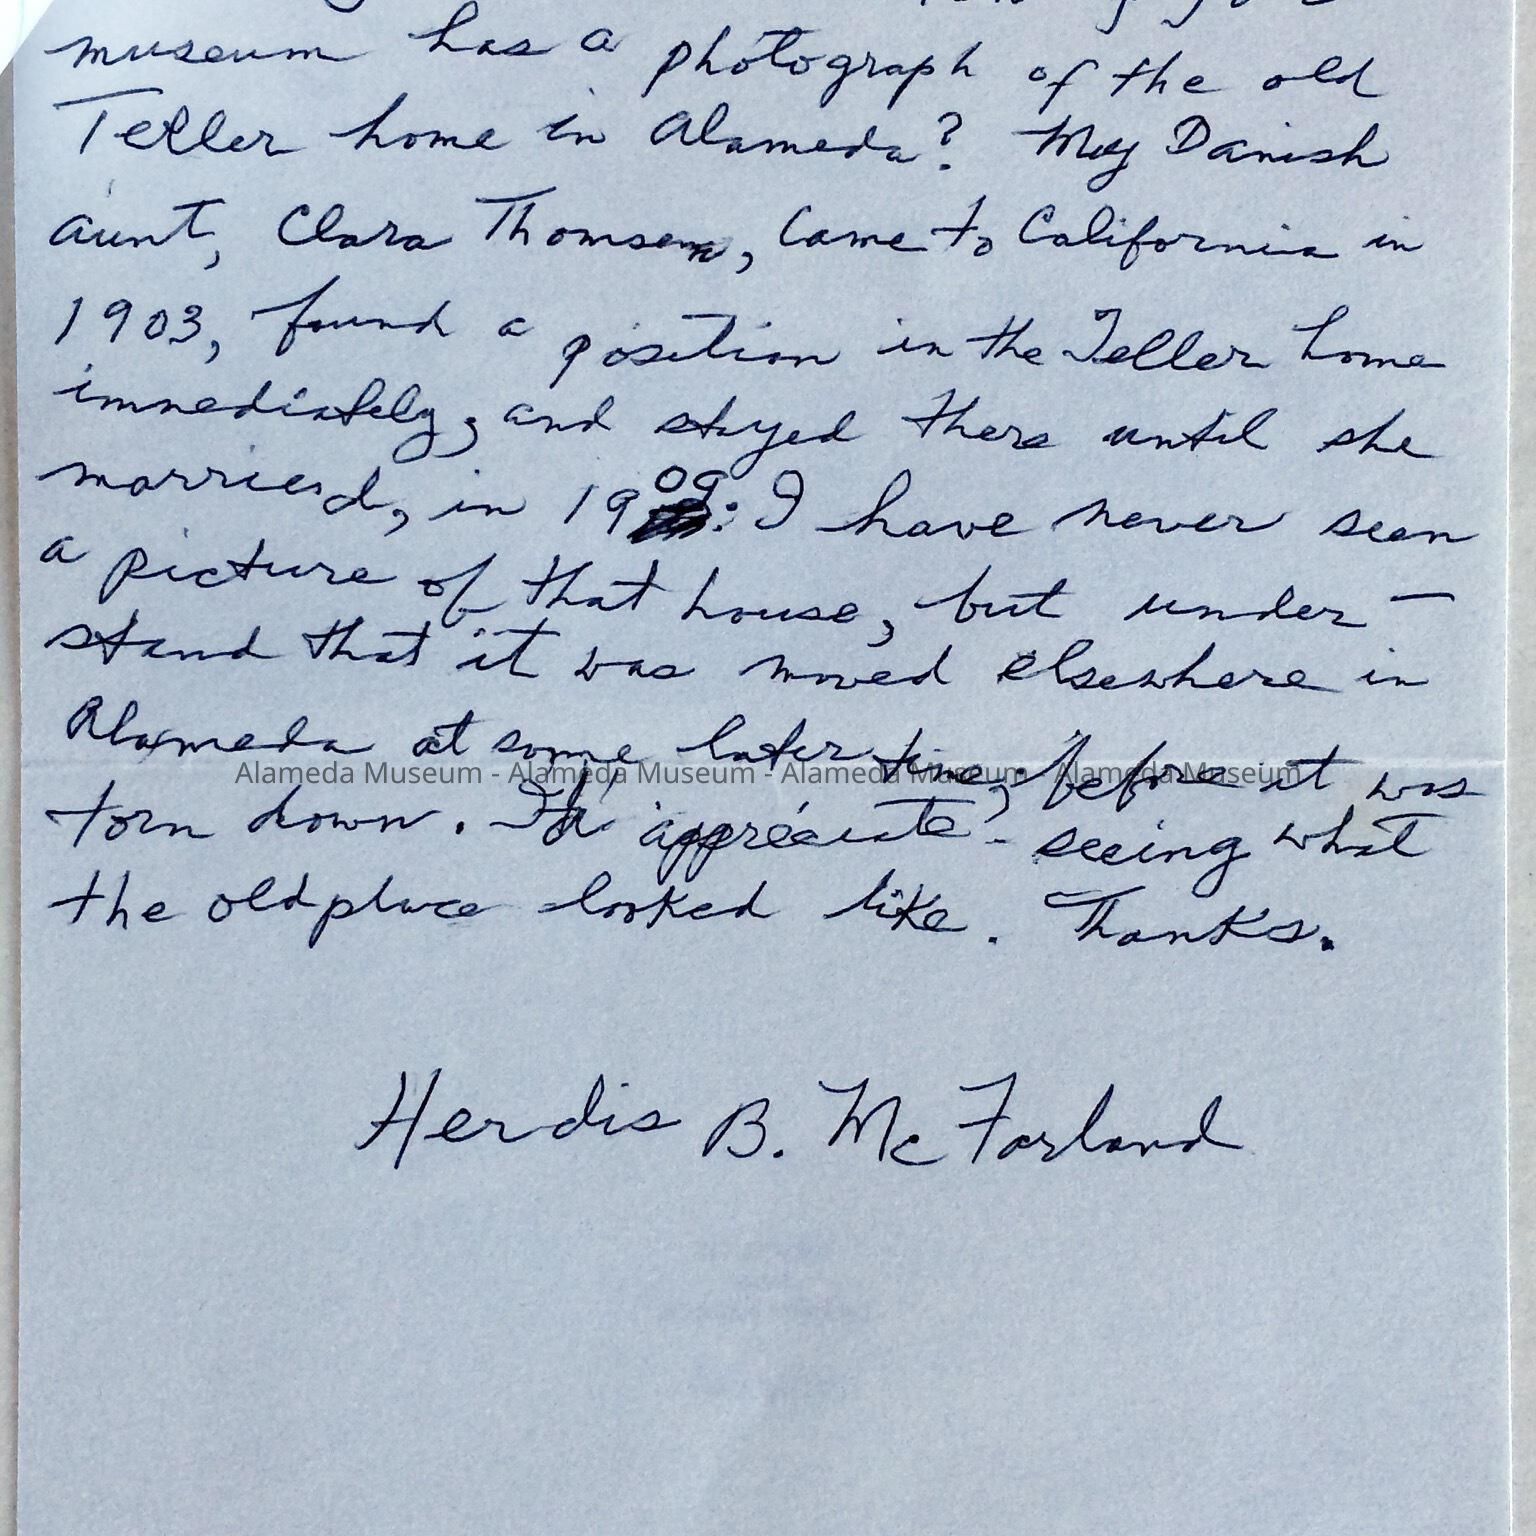 museum has a photograph of the old
Teller home in Alameda? My Danish
aunt, Clara Thomsen, came to California in
1903, found a position in the Teller home
immediately, and stayed there until she
married, in 1909. I have never seen
a picture of that house, but under-
stand that it was moved elsewhere in
Alameda at some later time, before it was
Alameda Museum - Alameda Museum - Alameda Museum - Alameda Museum
torn down. I'd appreciate seeing what
the old place looked like. Thanks.
Herdis B. McFarland